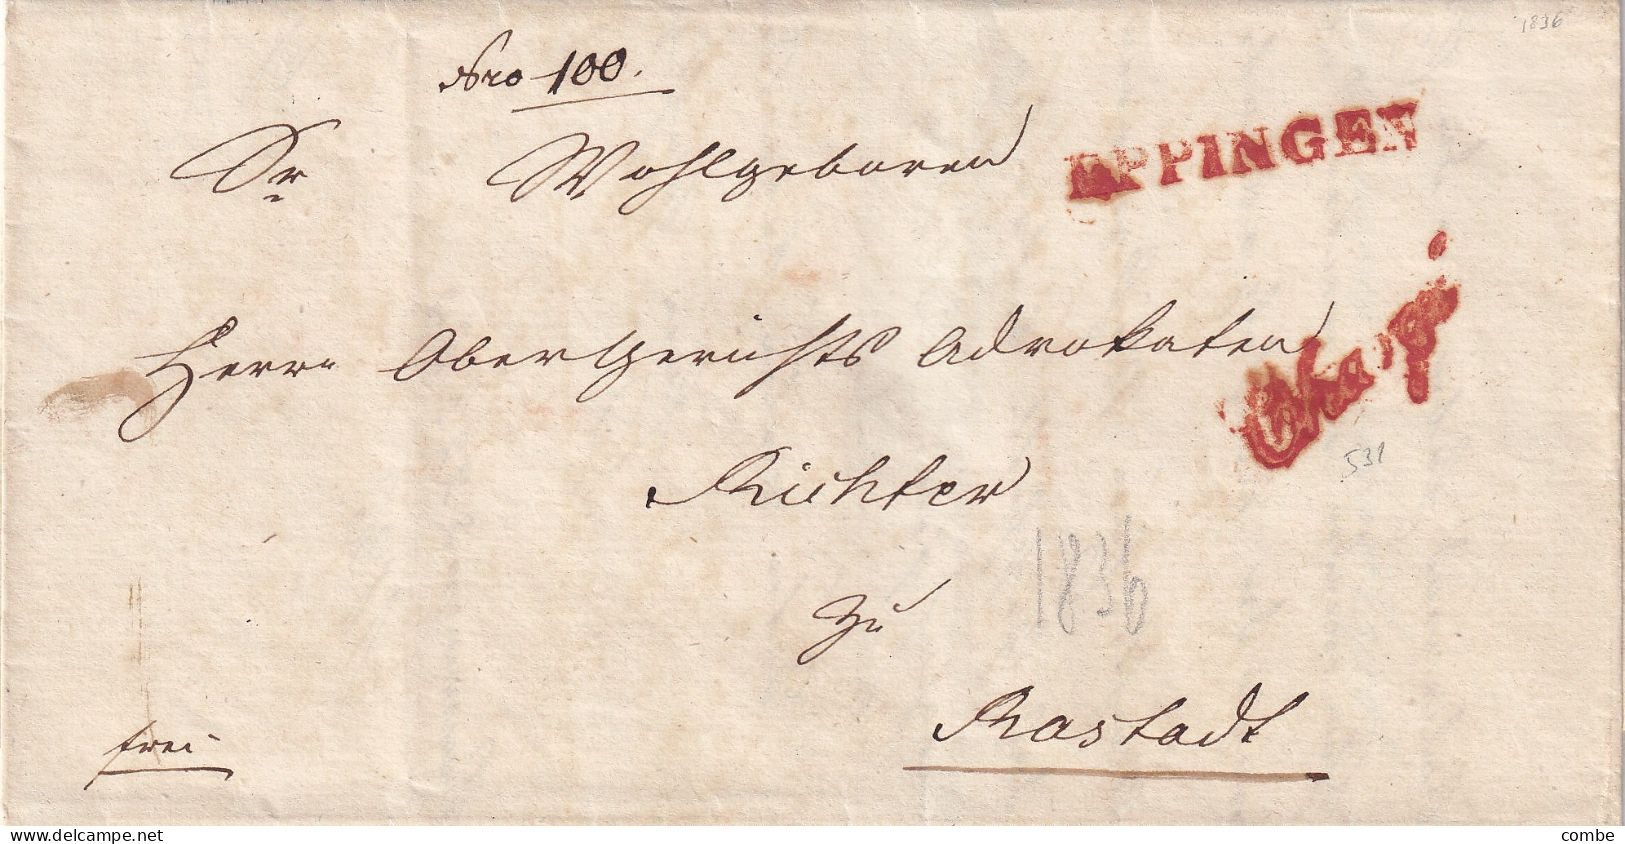 1836
Nro 100.
Sr Wohlgeboren
EPPINGEN
Herrn Obergerichts Advokaten
Chargé
531
Richter
1836
zu
Rastadt
frei
delcampe.net
combe